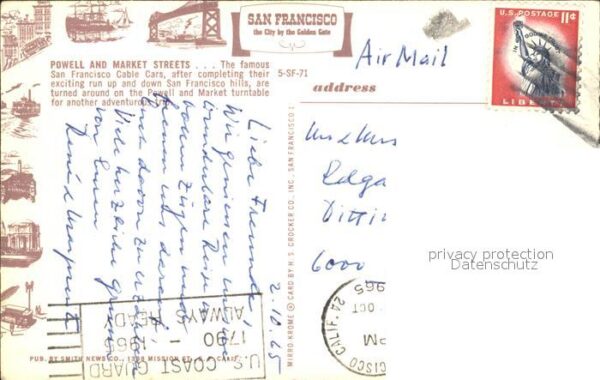 SAN FRANCISCO
the City by the Golden Gate
POWELL AND MARKET STREETS . . . The famous
San Francisco Cable Cars, after completing their
exciting run up and down San Francisco hills, are
turned around on the Powell and Market turntable
for another adventurous trip.
5-SF-71
Air Mail
U.S. POSTAGE 11¢
IN GOD WE TRUST
LIBERTY
address
2.10.65
Liebe Freunde,
Wir geniessen
wunderbare Reise
vollen Zügen und
freuen uns darauf,
Euch davon zu erzählen
Viele herzliche Grüsse
von Euren
René & Margrit
6000
privacy protection
Datenschutz
MIRRO-KROME ® CARD BY H. S. CROCKER CO., INC. SAN FRANCISCO 1
OCT
1965
PM
CISCO CALIF. 2A
U.S. COAST GUARD
1790 - 1965
ALWAYS READY
PUB. BY SMITH NEWS CO., MISSION ST., S. F., CALIF.